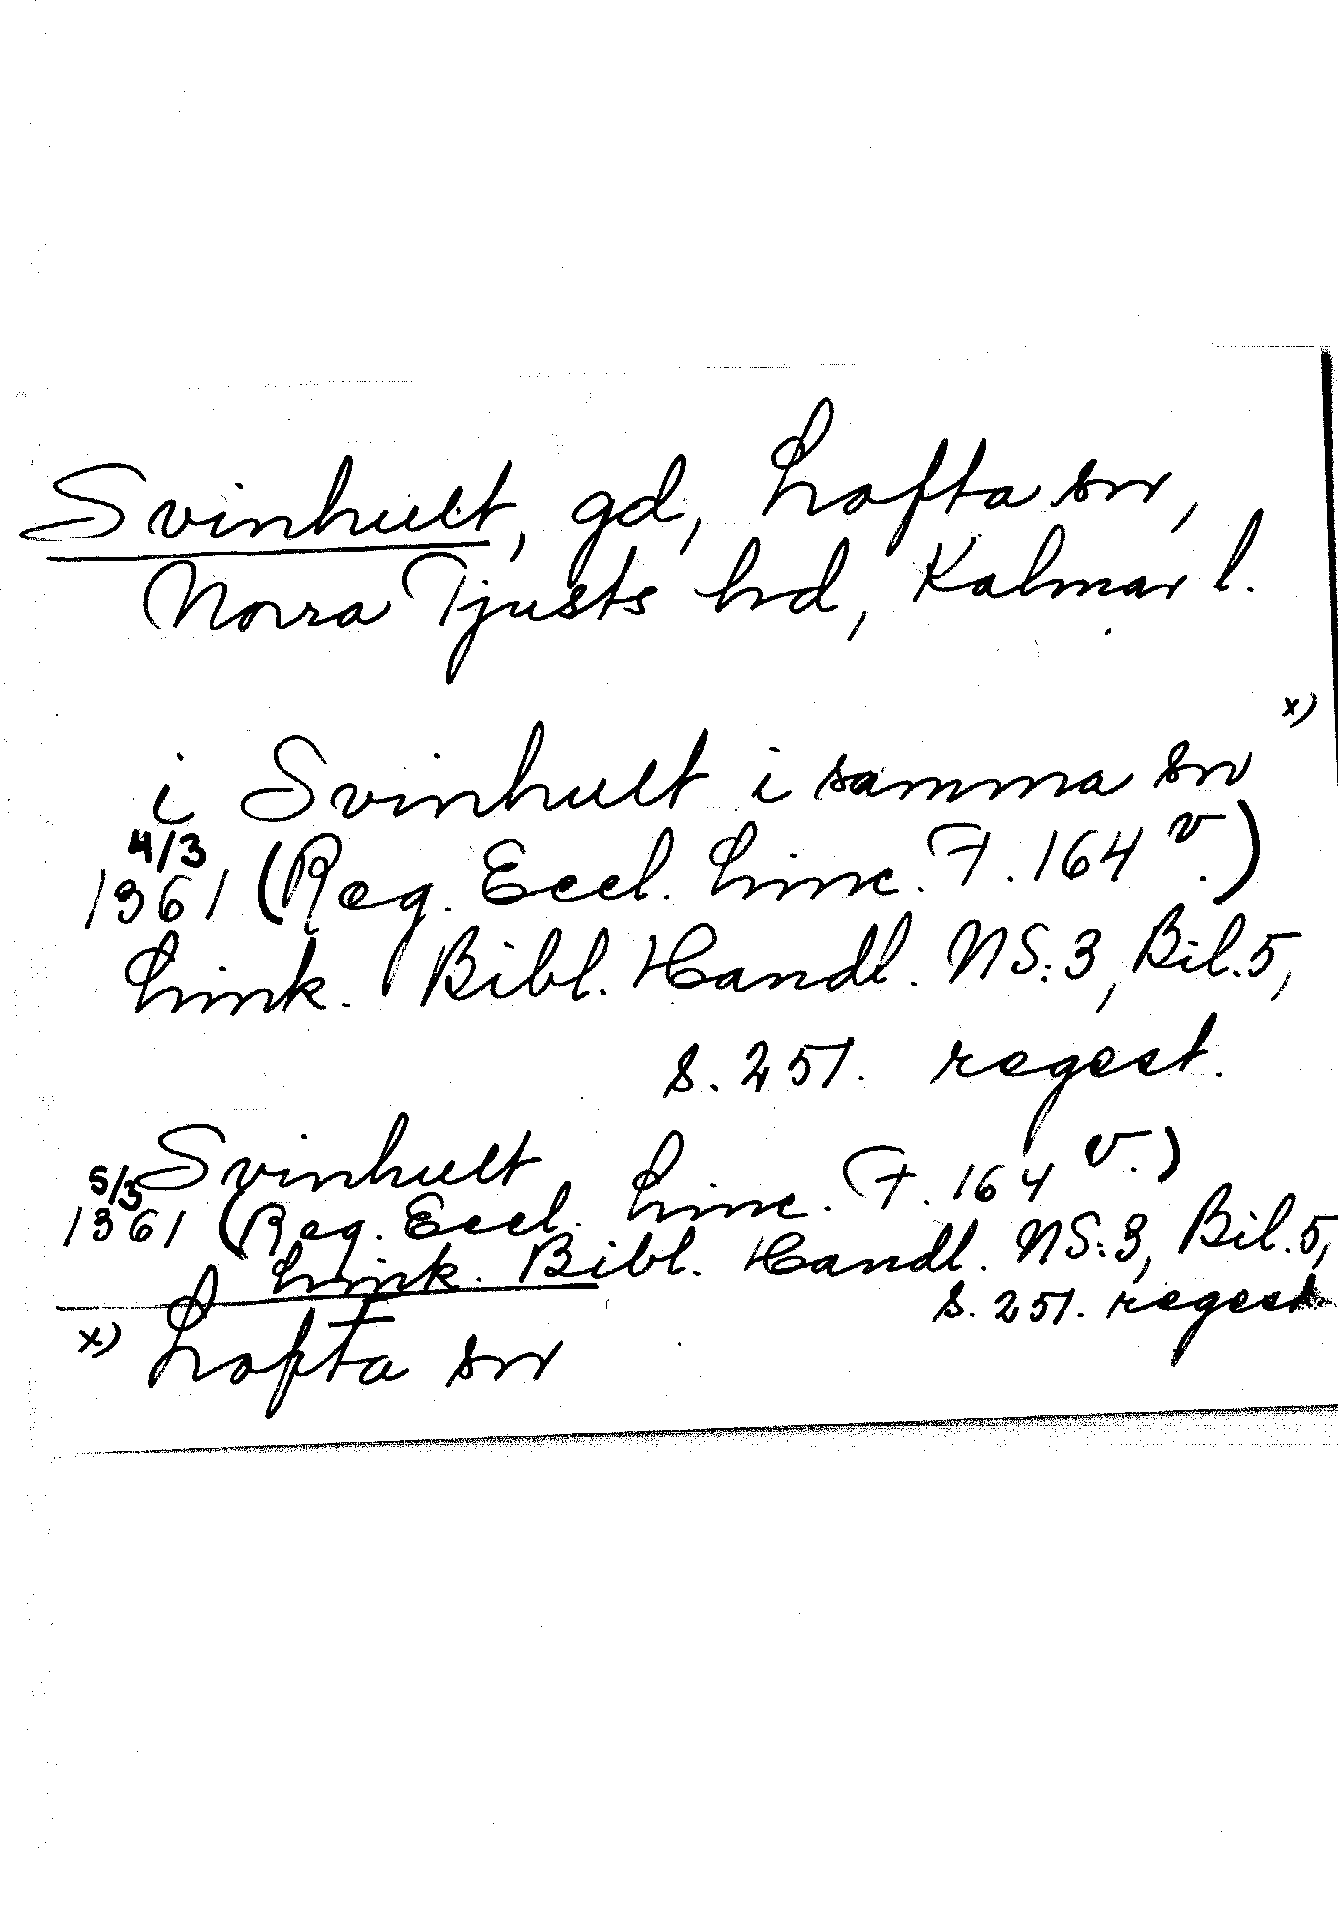 Svinhult, gd, Lofta sn,
Norra Tjusts hd, Kalmar l.
i Svinhult i samma sn x)
4/3
1361 (Reg. Eccl. Linc. F. 164 v.)
Link. Bibl. Handl. NS:3, Bil.5,
s. 251. regest.
Svinhult
5/3
1361 (Reg. Eccl. Linc. F. 164 v.)
Link. Bibl. Handl. NS:3, Bil.5,
s. 251. regest
x) Lofta sn